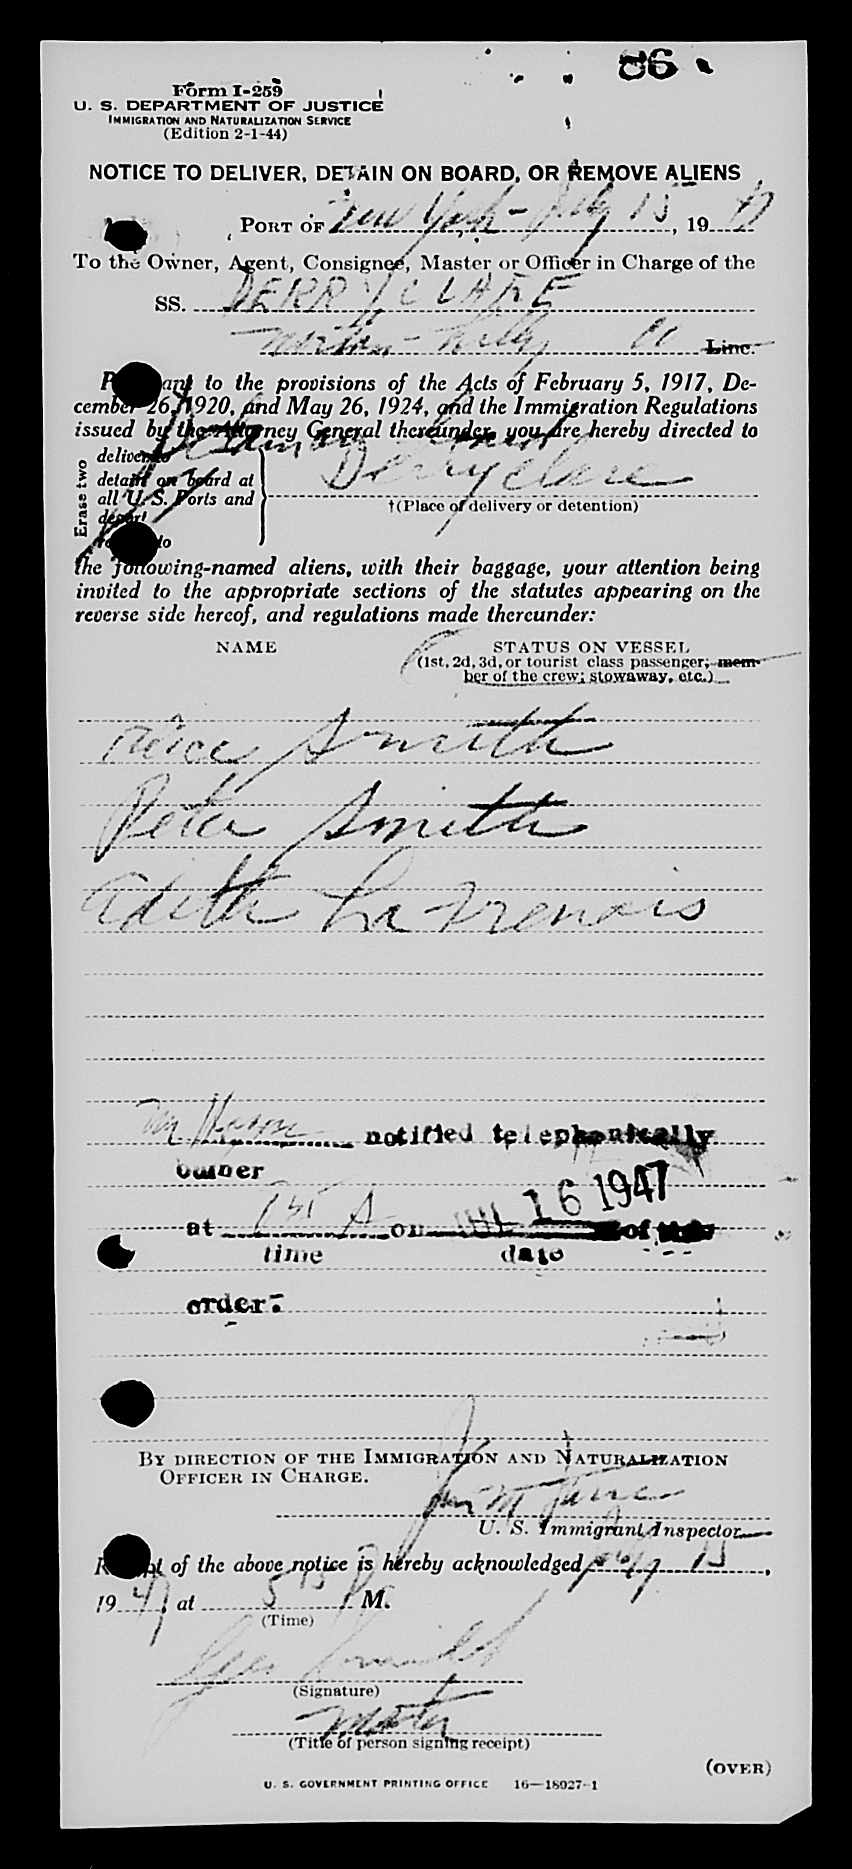 86
Form I-259
U. S. DEPARTMENT OF JUSTICE
IMMIGRATION AND NATURALIZATION SERVICE
(Edition 2-1-44)
NOTICE TO DELIVER, DETAIN ON BOARD, OR REMOVE ALIENS
PORT OF New York - July 15, 1947
To the Owner, Agent, Consignee, Master or Officer in Charge of the
SS. DERRYCLARE
Norton - Lilly Co Line.
Pursuant to the provisions of the Acts of February 5, 1917, De-
cember 26, 1920, and May 26, 1924, and the Immigration Regulations
issued by the Attorney General thereunder, you are hereby directed to
Erase two
deliver to
detain on board at
all U. S. Ports and
deport
Derryclare
†(Place of delivery or detention)
the following-named aliens, with their baggage, your attention being
invited to the appropriate sections of the statutes appearing on the
reverse side hereof, and regulations made thereunder:
NAME
STATUS ON VESSEL
(1st, 2d, 3d, or tourist class passenger; mem-
ber of the crew; stowaway, etc.)
Smith
Peter Smith
Edith La Frenais
Mr notified telephonically
owner
at 7 45 A on JUL 16 1947 of this
time date
order.
BY DIRECTION OF THE IMMIGRATION AND NATURALIZATION
OFFICER IN CHARGE.
U. S. Immigrant Inspector
Receipt of the above notice is hereby acknowledged July 15,
1947, at 5 15 P M.
(Time)
Geo
(Signature)
Master
(Title of person signing receipt)
(OVER)
U. S. GOVERNMENT PRINTING OFFICE 16—18027-1